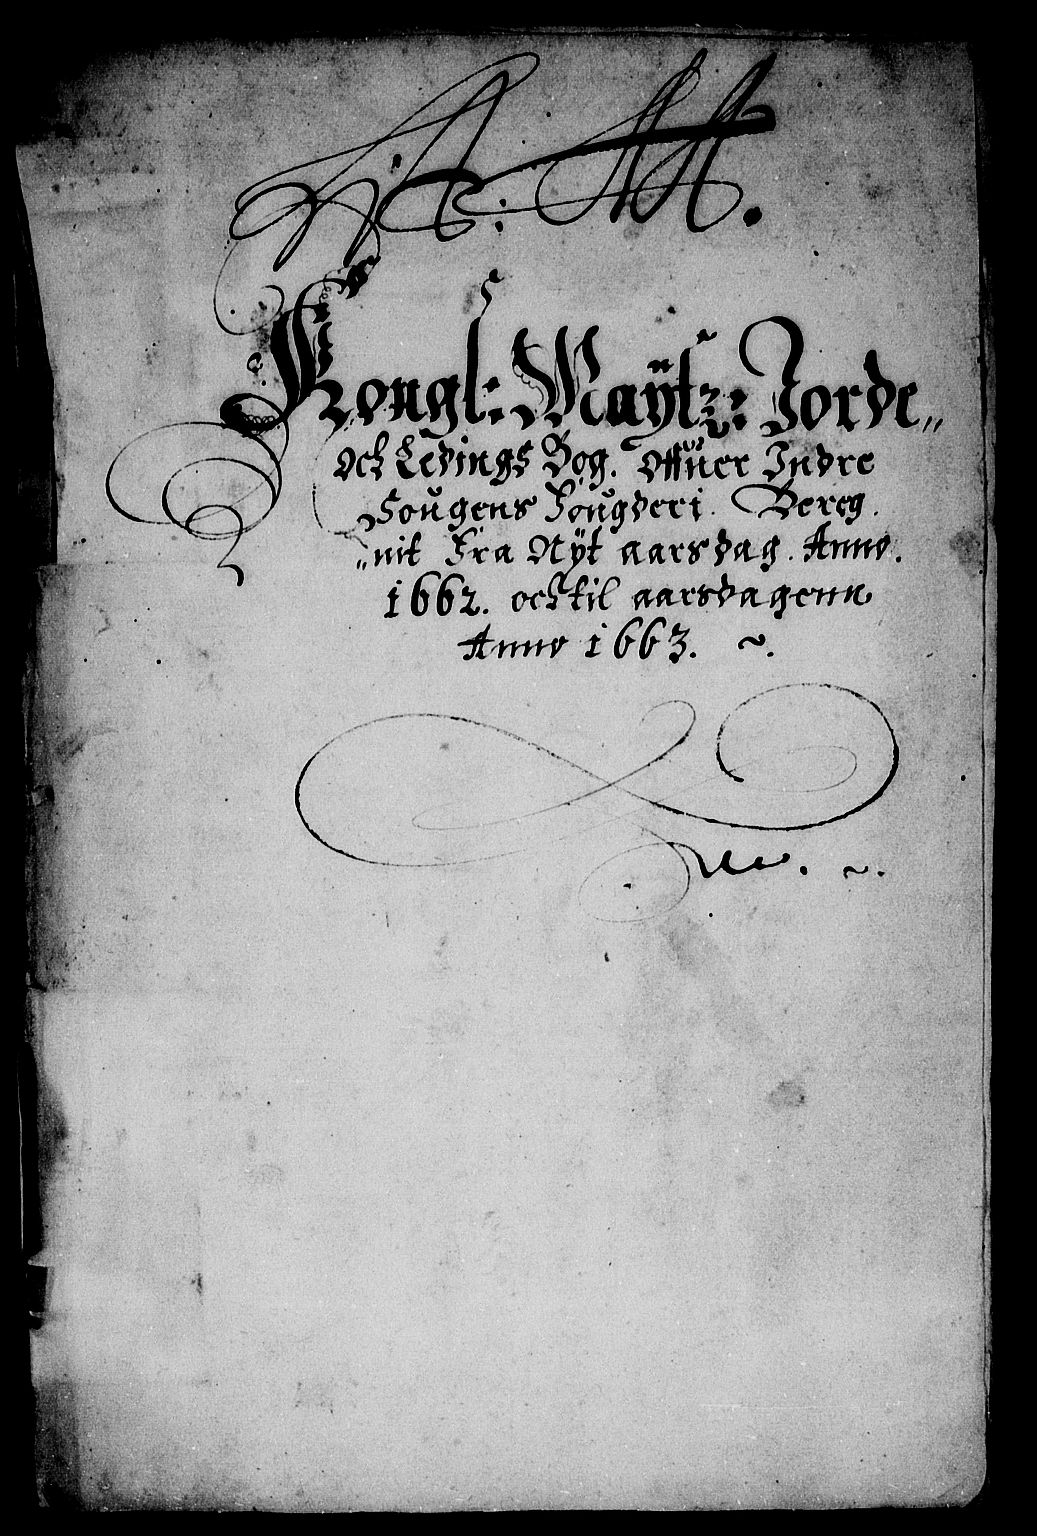 Kongl: Maÿtz: Jorde„
och Ledings Bog. offuer Indre
Sougens Fougderi. Bereg.
„nit Fra Nÿt aarsdag. Anno.
1662. och til aarsdagenn
Anno 1663. ~.